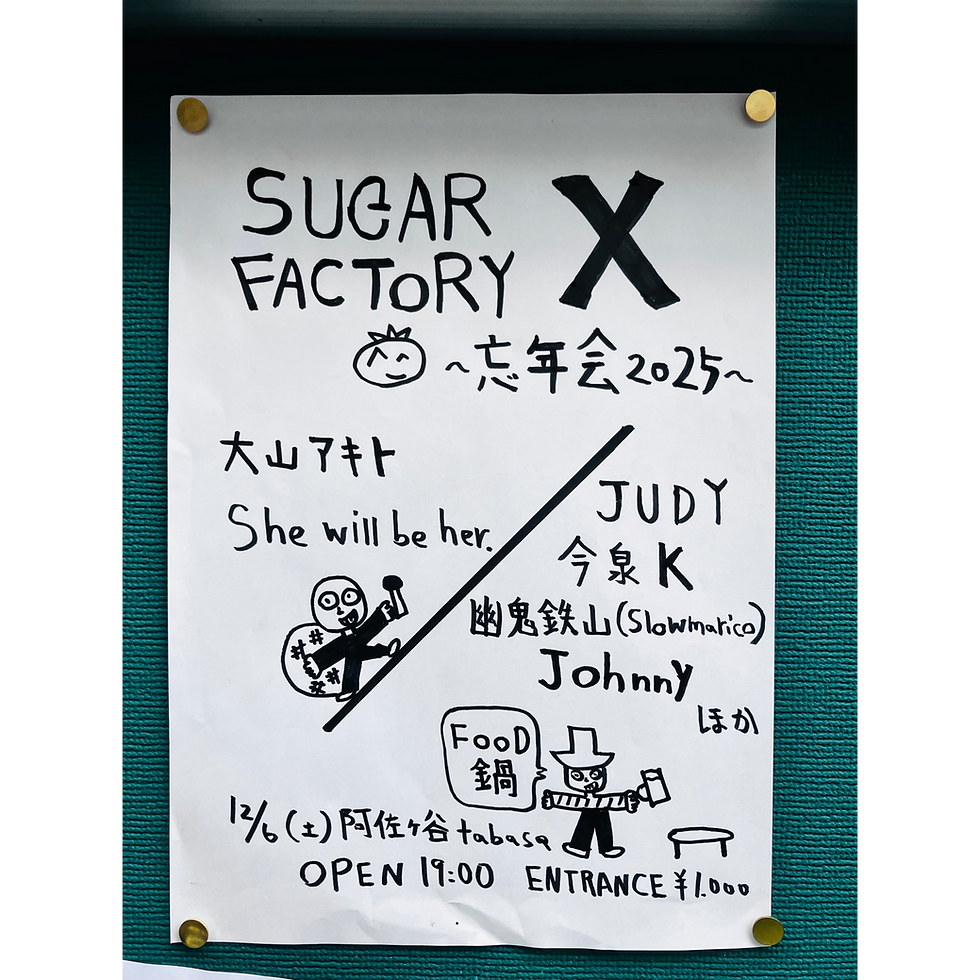 SUGAR
FACTORY X
～忘年会2025～
大山アキト
She will be her.
JUDY
今泉K
幽鬼鉄山(Slowmarico)
Johnny
ほか
FOOD
鍋
12/6(土)阿佐ヶ谷tabasa
OPEN 19:00 ENTRANCE ¥1.000